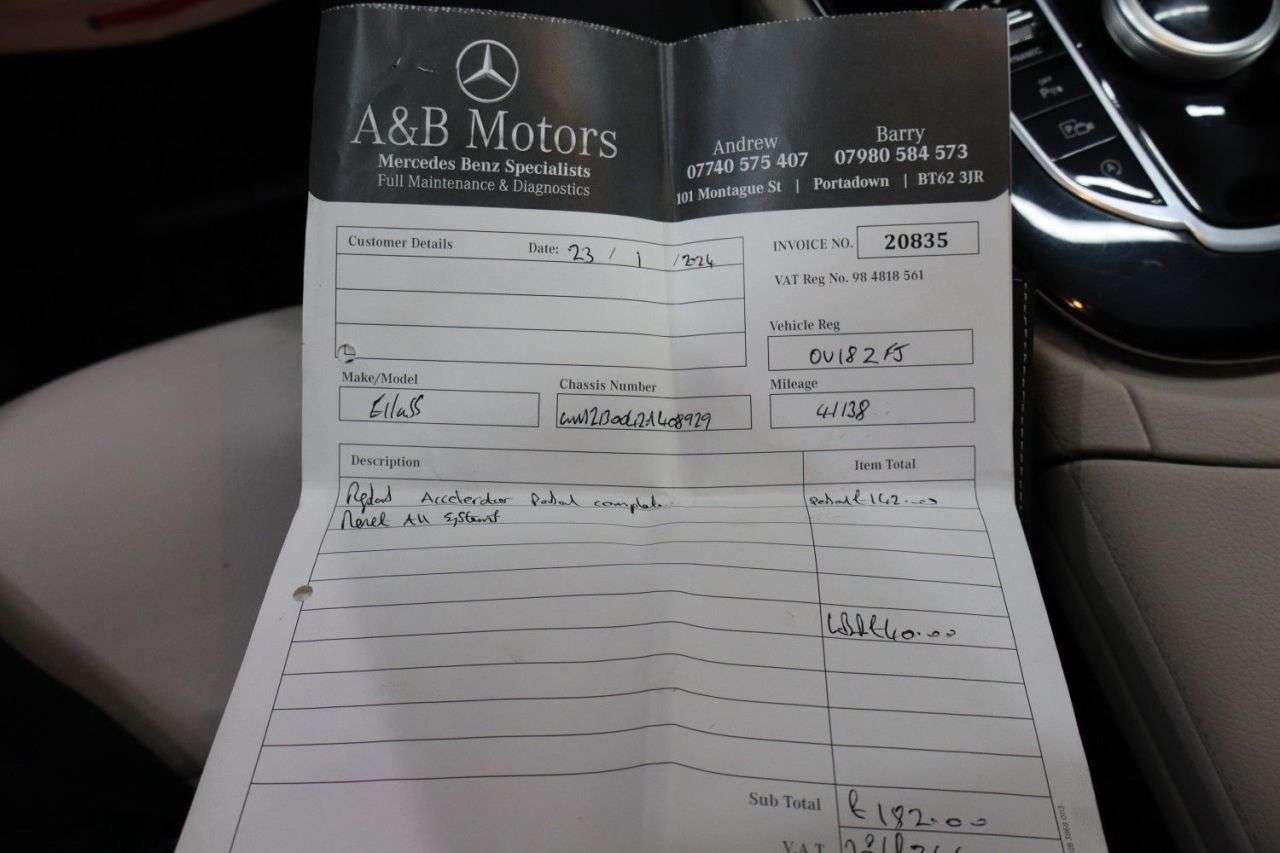 A&B Motors
Mercedes Benz Specialists
Full Maintenance & Diagnostics
Andrew
07740 575 407
Barry
07980 584 573
101 Montague St | Portadown | BT62 3JR
Customer Details
Date: 23 / 1 / 2024
INVOICE NO. 20835
VAT Reg No. 98 4818 561
Vehicle Reg
OV18 ZFJ
Make/Model
Chassis Number
Mileage
41138
Description
Item Total
Accelerator complete
142.00
All Systems
£40.00
Sub Total
£182.00
V.A.T